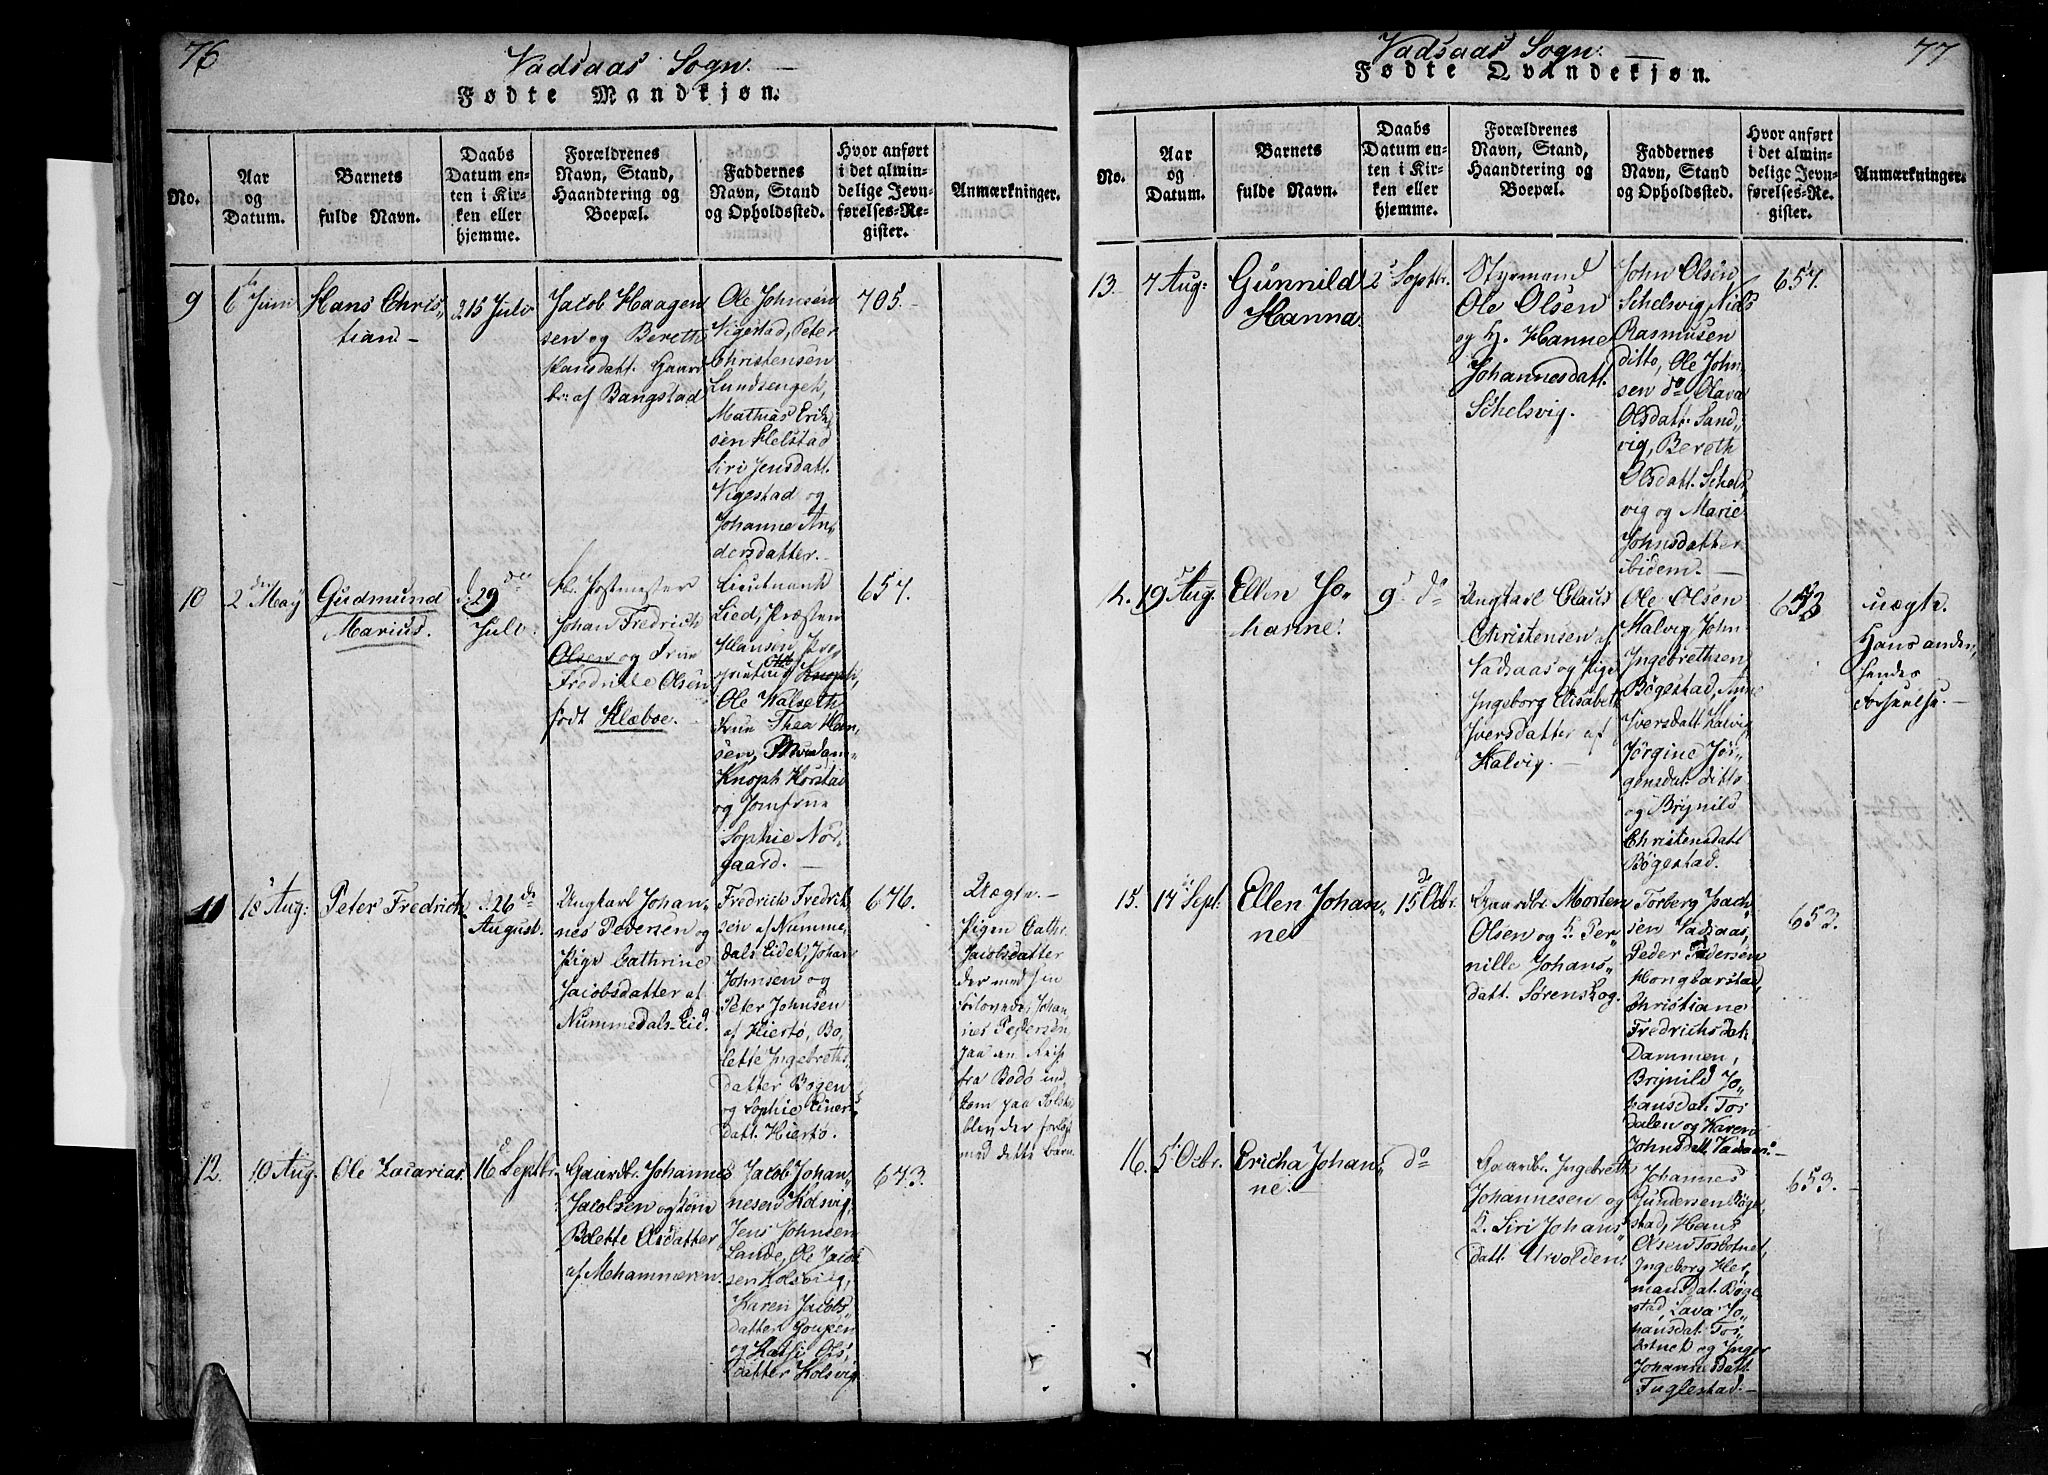 76
Vadsaas Sogn.
Fødte Mandkjøn.
No.
Aar
og
Datum.
Barnets
fulde Navn.
Daabs
Datum en-
ten i Kir-
ken eller
hjemme.
Forældrenes
Navn, Stand,
Haandtering og
Boepæl.
Faddernes
Navn, Stand
og Opholdssted.
Hvor anført
i det almin-
delige Jevn-
førelses-Re-
gister.
Anmærkninger.
9
6 Juni
Hans Chris„
tian
15 Juli
Jacob Haagen
sen og Bereth
Hansdatt. Gaard
br: af Bangstad
Ole Johnsen
Vigestad, Peter
Christensen
Lundsenget,
Mathias Erik„
sen Helstad
Siri Jensdatt.
Vigestad og
Johanne An„
dersdatter.
705.
10
2 May
Gudmund
Marius.
29
Juli
Postmester
Johan Fredrich
Olsen og Frue
Fredrikke Olsen
født Klæboe.
Lieutnant
Lied, Præsten
Hansen,
Ole Walseth
Frue Thea Han„
sen, Madam
Knoph Korstad
og Jomfrue
Sophie Nor„
gaard.
657.
11
18 Aug:
Peter Fredrich
26
August.
Ungkarl Johan„
nes Pedersen og
Pige Cathrine
Jacobsdatter af
Nummedals-Eid.
Fredrich Fredrik
sen af Numme
dals Eidet, Johan
Johnsen og
Peter Johnsen
af Hiertø, Bo„
lette Ingebreths
datter Bogen
og Sophie Einers
datt. Hiertø.
676.
Uægte.
Pigen Cathr.
Jacobsdatter
der med sin
forlovede, Johan
nes Pedersen,
paa en Reise
fra Bodø ind„
kom paa
blev der forløst
med dette Barn.
12.
10 Aug.
Ole Zacarias.
16 Septbr.
Gaardbr. Johannes
Jacobsen og Kone
Bolette Olsdatter
af Mehammeren.
Jacob Johan„
nesen Kolsvig,
Jens Johnsen
Lande, Ole Jacob
sen Kolsvig,
Karen Jacobs„
datter
og Ols„
datter Kolsvig.
643.
77
Vadsaas Sogn.
Fødte Qvindekjøn.
No.
Aar
og
Datum.
Barnets
fulde Navn.
Daabs
Datum en-
ten i Kir-
ken eller
hjemme.
Forældrenes
Navn, Stand,
Haandtering og
Boepæl.
Faddernes
Navn, Stand
og Opholdssted.
Hvor anført
i det almin-
delige Jevn-
førelses-Re-
gister.
Anmærkninger.
13.
7 Aug:
Gunnild
Hanna.
2 Septbr.
Styrmand
Ole Olsen
og H. Hanne
Johannesdatt.
Schelsvig.
John Olsen
Schelsvig, Niels
Rasmusen
ditto, Ole John„
sen do Olava
Olsdatt. Sand„
vig, Bereth
Olsdatt. Schels„
vig og Marie
Johnsdatter
ibidem.
657.
14.
19 Aug.
Ellen Jo„
hanne.
9 do
Ungkarl Claus
Christensen af
Vadsaas og Pige
Ingeborg Elisabeth
Iversdatter af
Kalvig.
Ole Olsen
Kalvig, John
Ingebrethsen
Bøgestad, Anne
Iversdatt. Kalvig,
Jørgine Jør„
gensdat. ditto
og Brynild
Christensdatt.
Bøgestad.
653
uægte.
Hans anden,
hendes
Forseelse.
15.
14 Sept.
Ellen Johan„
ne
15 Octbr.
Gaardbr. Morten
Olsen og K. Per„
nille Johans„
datt. Sørenskog.
Torberg Zach„
sen Vadsaas,
Peder Pedersen
Hongbarstad,
Christiane
Fredrichsdat.
Dammen,
Brynild Jo„
hansdat. Tos„
dalen og Karen
Johnsdatt. Vadsaas
653.
16.
5 Octbr.
Ericha Johan„
ne.
do
Gaardbr. Ingebreth
Johannesen og
K. Siri Johans„
datt. Urvolden.
Johannes
Gundersen Bøge„
stad, Hans
Olsen Tosbotnet,
Ingeborg Her„
mansdat. Bøge„
stad, Lava Jo„
hansdat. Tos„
botnet og Inger
Johannesdatt.
Fuglestad.
653.